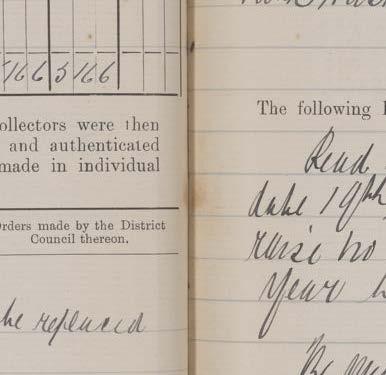 5 16 6 5 16 6
ollectors were then
and authenticated
made in individual
Orders made by the District
Council thereon.
be replaced
The following
Read
date 19th
raise no
year